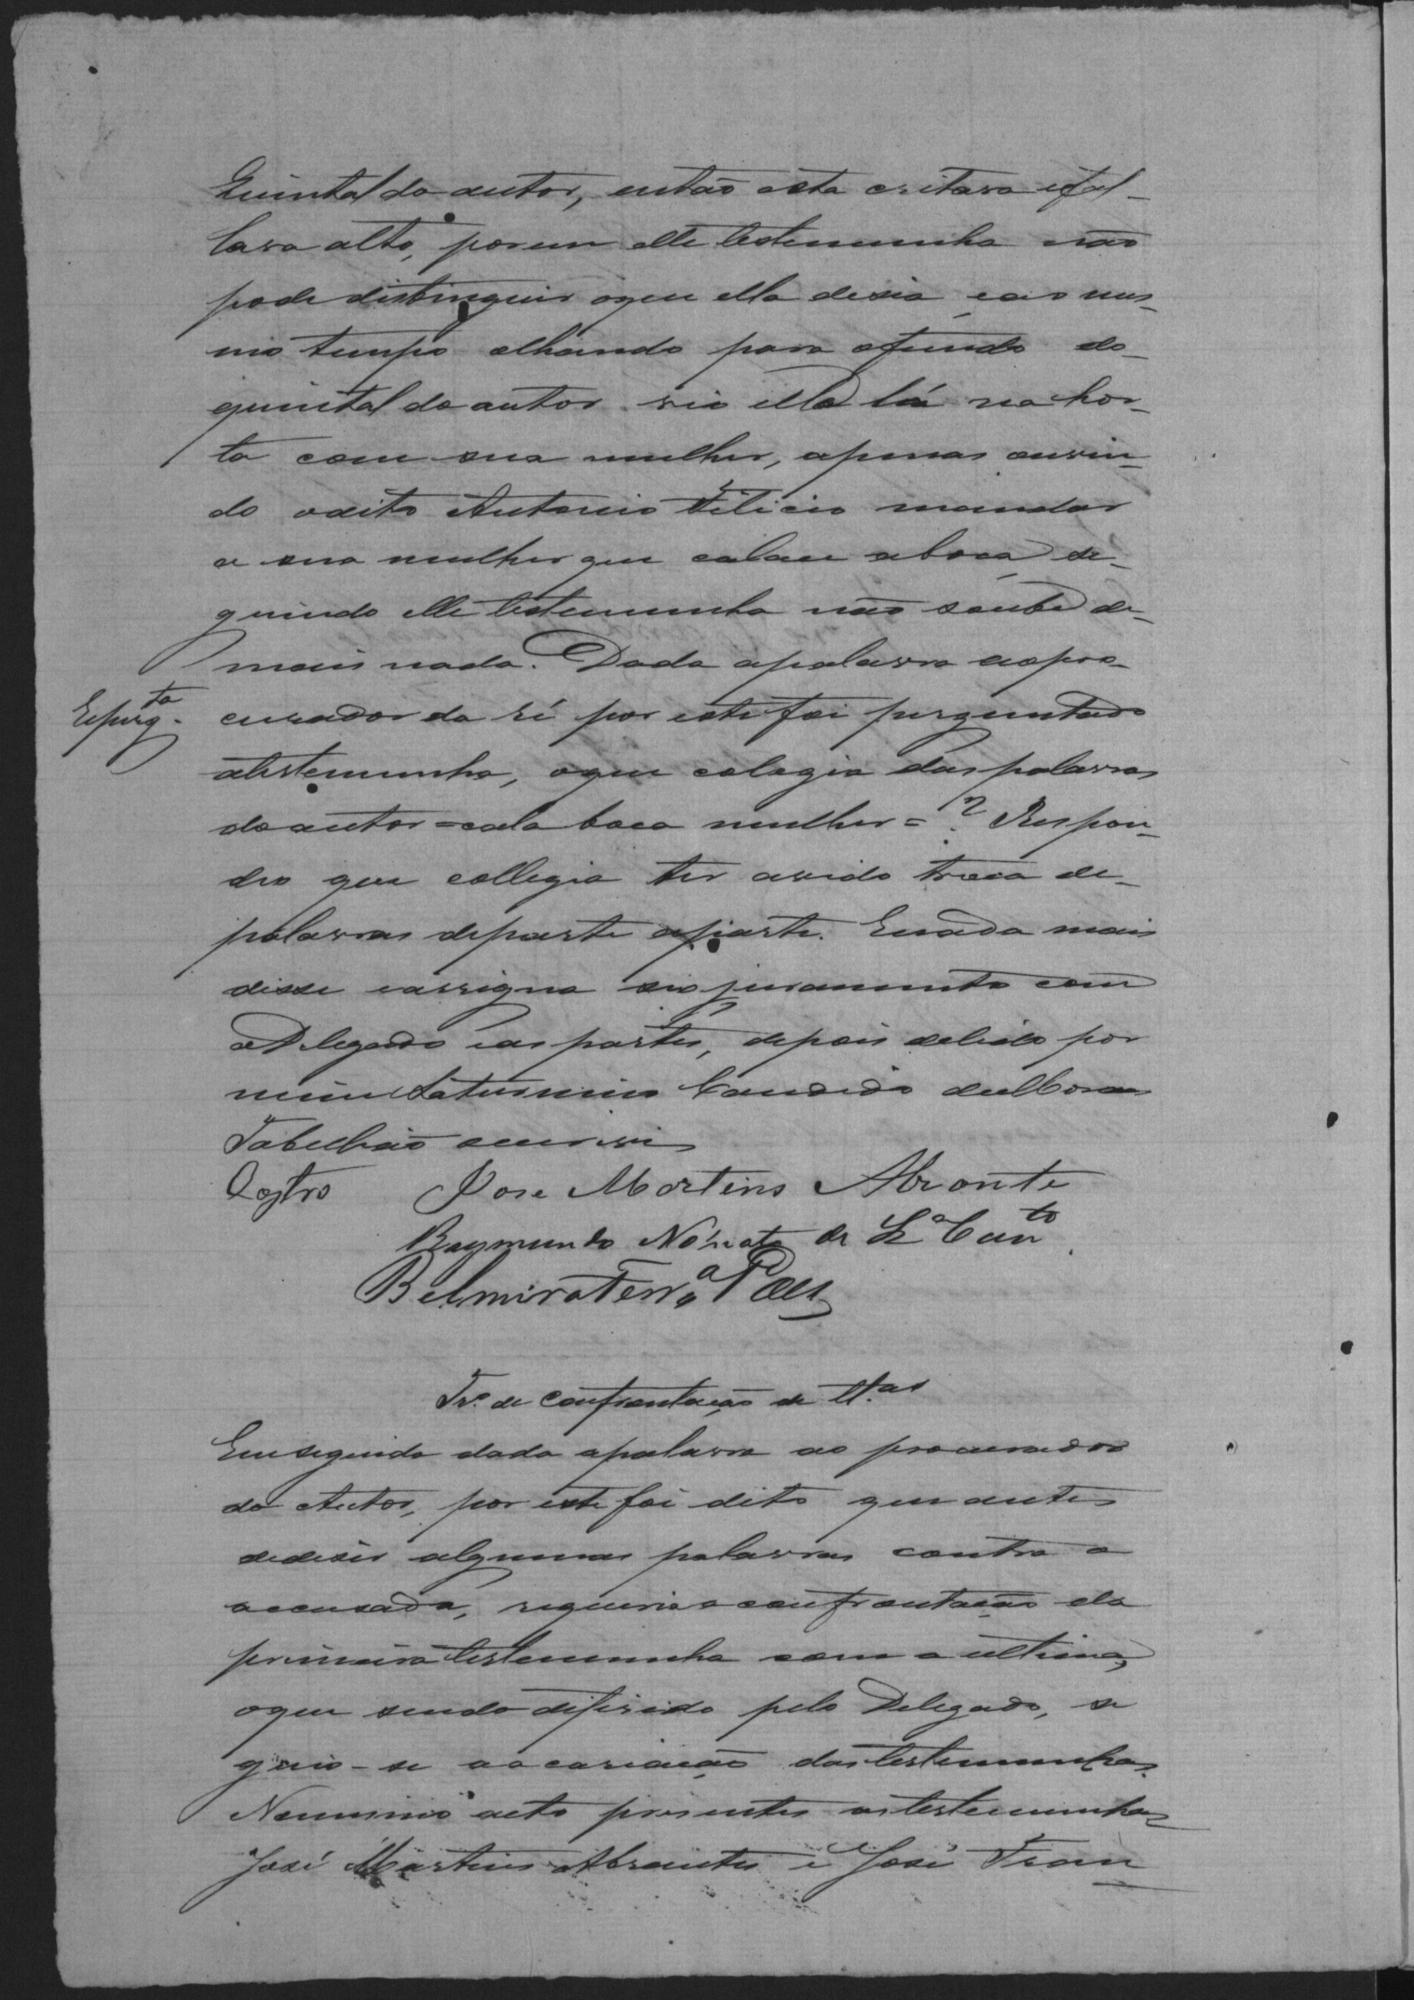 Quintal do autor, então esta critava e fal-
lava alto, porem elle testemunha não
pode distinguir oque ella desia, e ao mes-
mo tempo olhando para ofundo do-
quintal do autor vio elle lá na hor-
ta com sua mulher, apenas ouvin-
do odito Antonio Felicio mandar
a sua mulher que calace aboca, se-
guindo elle testemunha não soube de-
mais nada. Dada apalavra aopro-
Repergta. curador da ré por este foi perguntado
atestemunha, oque colegia das palavras
do autor = cala boca mulher = ? Respon-
deo que collegia ter avido troca de-
palavras departe aparte. Enada mais
disse eassigna seo juramento com
o Delegado eas partes, depois delido por
mim Saturnino Candido de Moraes
Tabelhião escrivi
Castro José Martins Abrante
Raymundo Nonato de Sa Canto
Belmiro Ferra Paes
Tro. de confrontação de ttas
Emseguida dada apalavra ao procurador
do Autor, por este foi dito que antes
dedesir algumas palavras contra a
accusada, requeria a confrontação da
primeira testemunha com a ultima,
oque sendo diferido pelo Delegado, se
guio-se a acariação das testemunhas.
Nomesmo acto presentes as testemunhas
José Martins Abrantes e José Fran